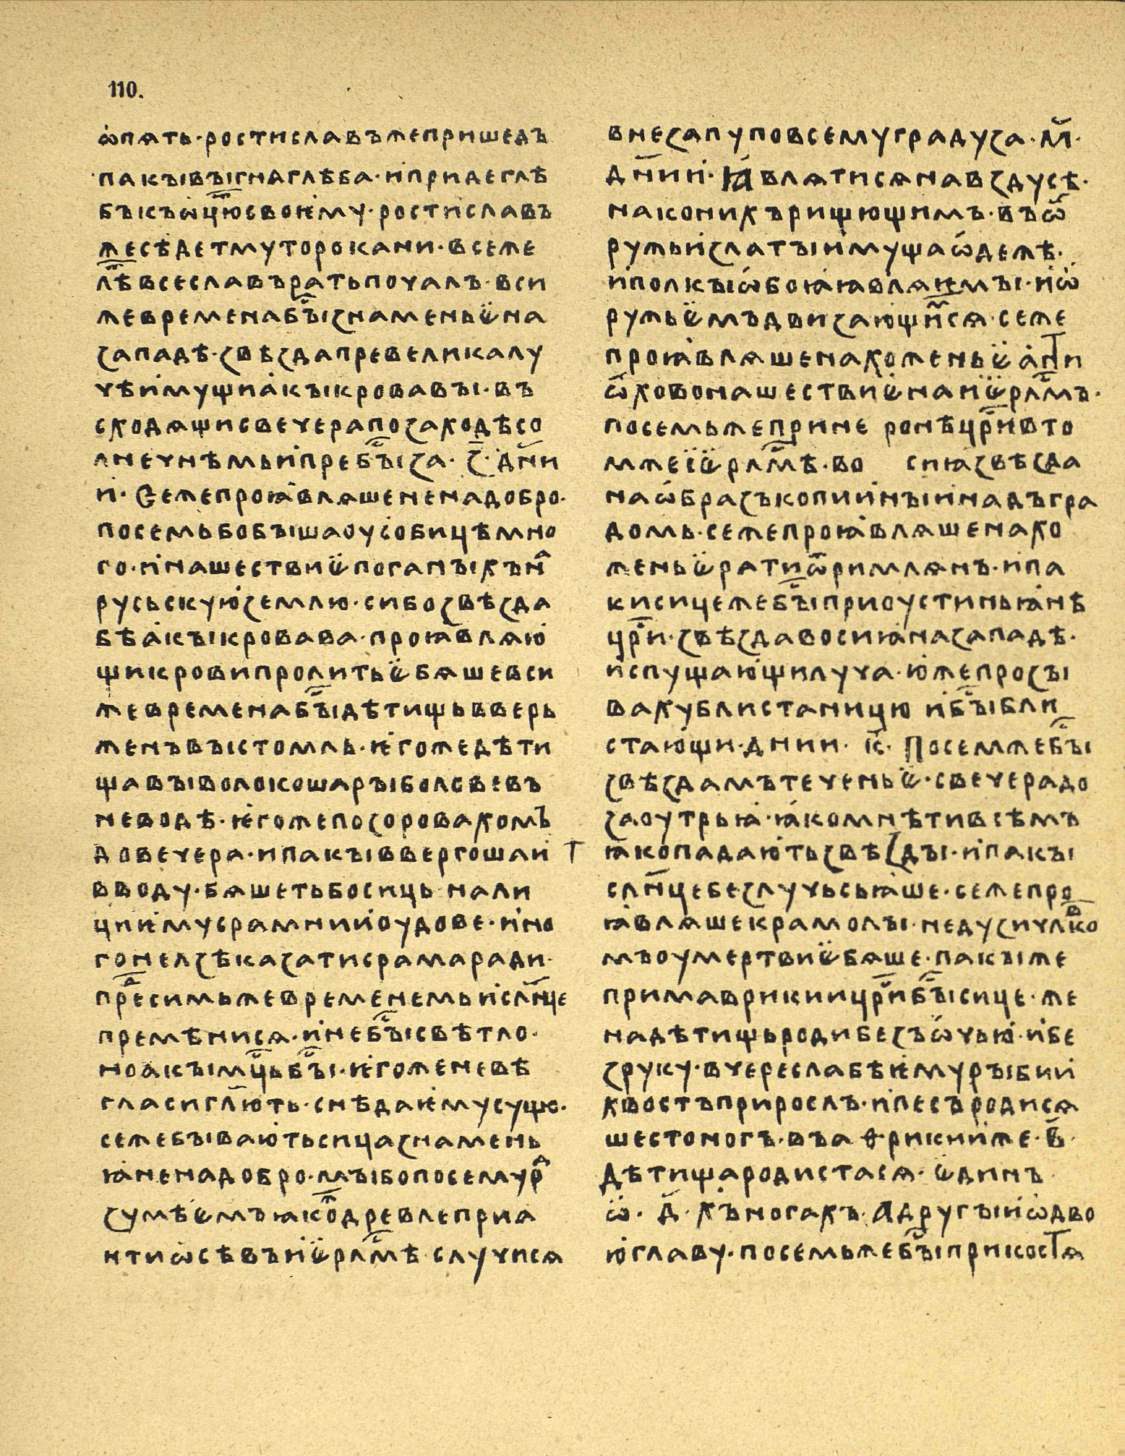 110.
ѡпѧть · ростиславъжепришедъ
пакыівъігнаглѣба · ипридеглѣ
бъкъѡц҃юсвоѥму · ростиславъ
жеседетмуторокани · всеже
лѣ҃всеславъратьпочалъ · вси
жевременабъі҇знаменьѥна
западѣ · звѣздапревеликалу
чѣимущиакъікровавъі · въ
сходящисвечерапозаходѣсо
лнечнѣмьипребъі҇за · з҃ · дн҃ии
и · Сежепроꙗвляшененадобро ·
посемьбобъішаоусобицѣмно
го · инашествиѥпоганъіхън
русьскуюземлю · сибозвѣзда
бѣакъікровава · проꙗвляю
щикровипролитьѥбяшевси
жевременабъі҇дѣтищьвверь
женъвъістомль · ѥгожедѣти
щавъіволокошаръіболовевъ
неводѣ · ѥгожепозоровахомъ
довечера · ипакъіввергошаи
вводу · бяшетьбосиць нали
циѥмусрамниѥоудове · ино
гонелзѣказатисрамаради ·
пре҇симьжевременемьисл҃нце
премѣнися · инебъі҇свѣтло ·
ноакъімц҇ьбъі҇ · ѥгоженевѣ
гласигл҃ють · снѣдаѥмусущю ·
сежебъіваютьсицазнамень
ꙗненадобро · мъібопосемур
зумѣѥмъꙗкодревлеприа
нтиѡсѣвъиѥрл҇мѣ случися
внезапуповсемуградуза · м҃ ·
дн҃ии · Ꙗвлятисянавздусѣ ·
наконихърищющимъ · въѡ
ружьизлатъіимущаѡдежѣ ·
иполкъіѡбоꙗꙗвляѥмъі · иѡ
ружьѥмъдвизающимся · сеже
проꙗвляшенахоженьѥанти
ѡховонашествиѥнаиѥрл҇мъ ·
посемьжеприне ронѣцр҇ивто
мжеиѥрл҇мѣ · во сиꙗзвѣзда
наѡбразъкопииныінадъгра
домь · сежепроꙗвляшенахо
женьѥратиѡримлянъ · ипа
кисицежебъі҇приоустиньꙗнѣ
цр҇и · звѣздавосиꙗназападѣ ·
испущающилуча · южепрозъі
вахублистаницю ибъі҇бли
стающи · днии · к҃ · Посемжебъі҇
звѣздамътеченьѥ · свечерадо
заоутрьꙗ · ꙗкомнѣтивсѣмъ
ꙗкопадаютьзвѣздъі · ипакъі
слн҃цебезлучьсьꙗше · сежепро
ꙗвляшекрамолъі · недузичл҃вко
мъоумертвиѥбяше · пакъіже
примаврикиицр҇ибъі҇сице · же
надѣтищьродибезъѡчью · ибе
зруку · вчереслабѣѥмуръібии
хвостъприрослъ · ипесъродися
шестоногъ · въаѳрикииже · в҃ ·
дѣтищародистася · ѥдинъ
ѡ · д҃ · хъногахъ · Адругъіиѡдво
юглаву · посемьжебъі҇прикостя